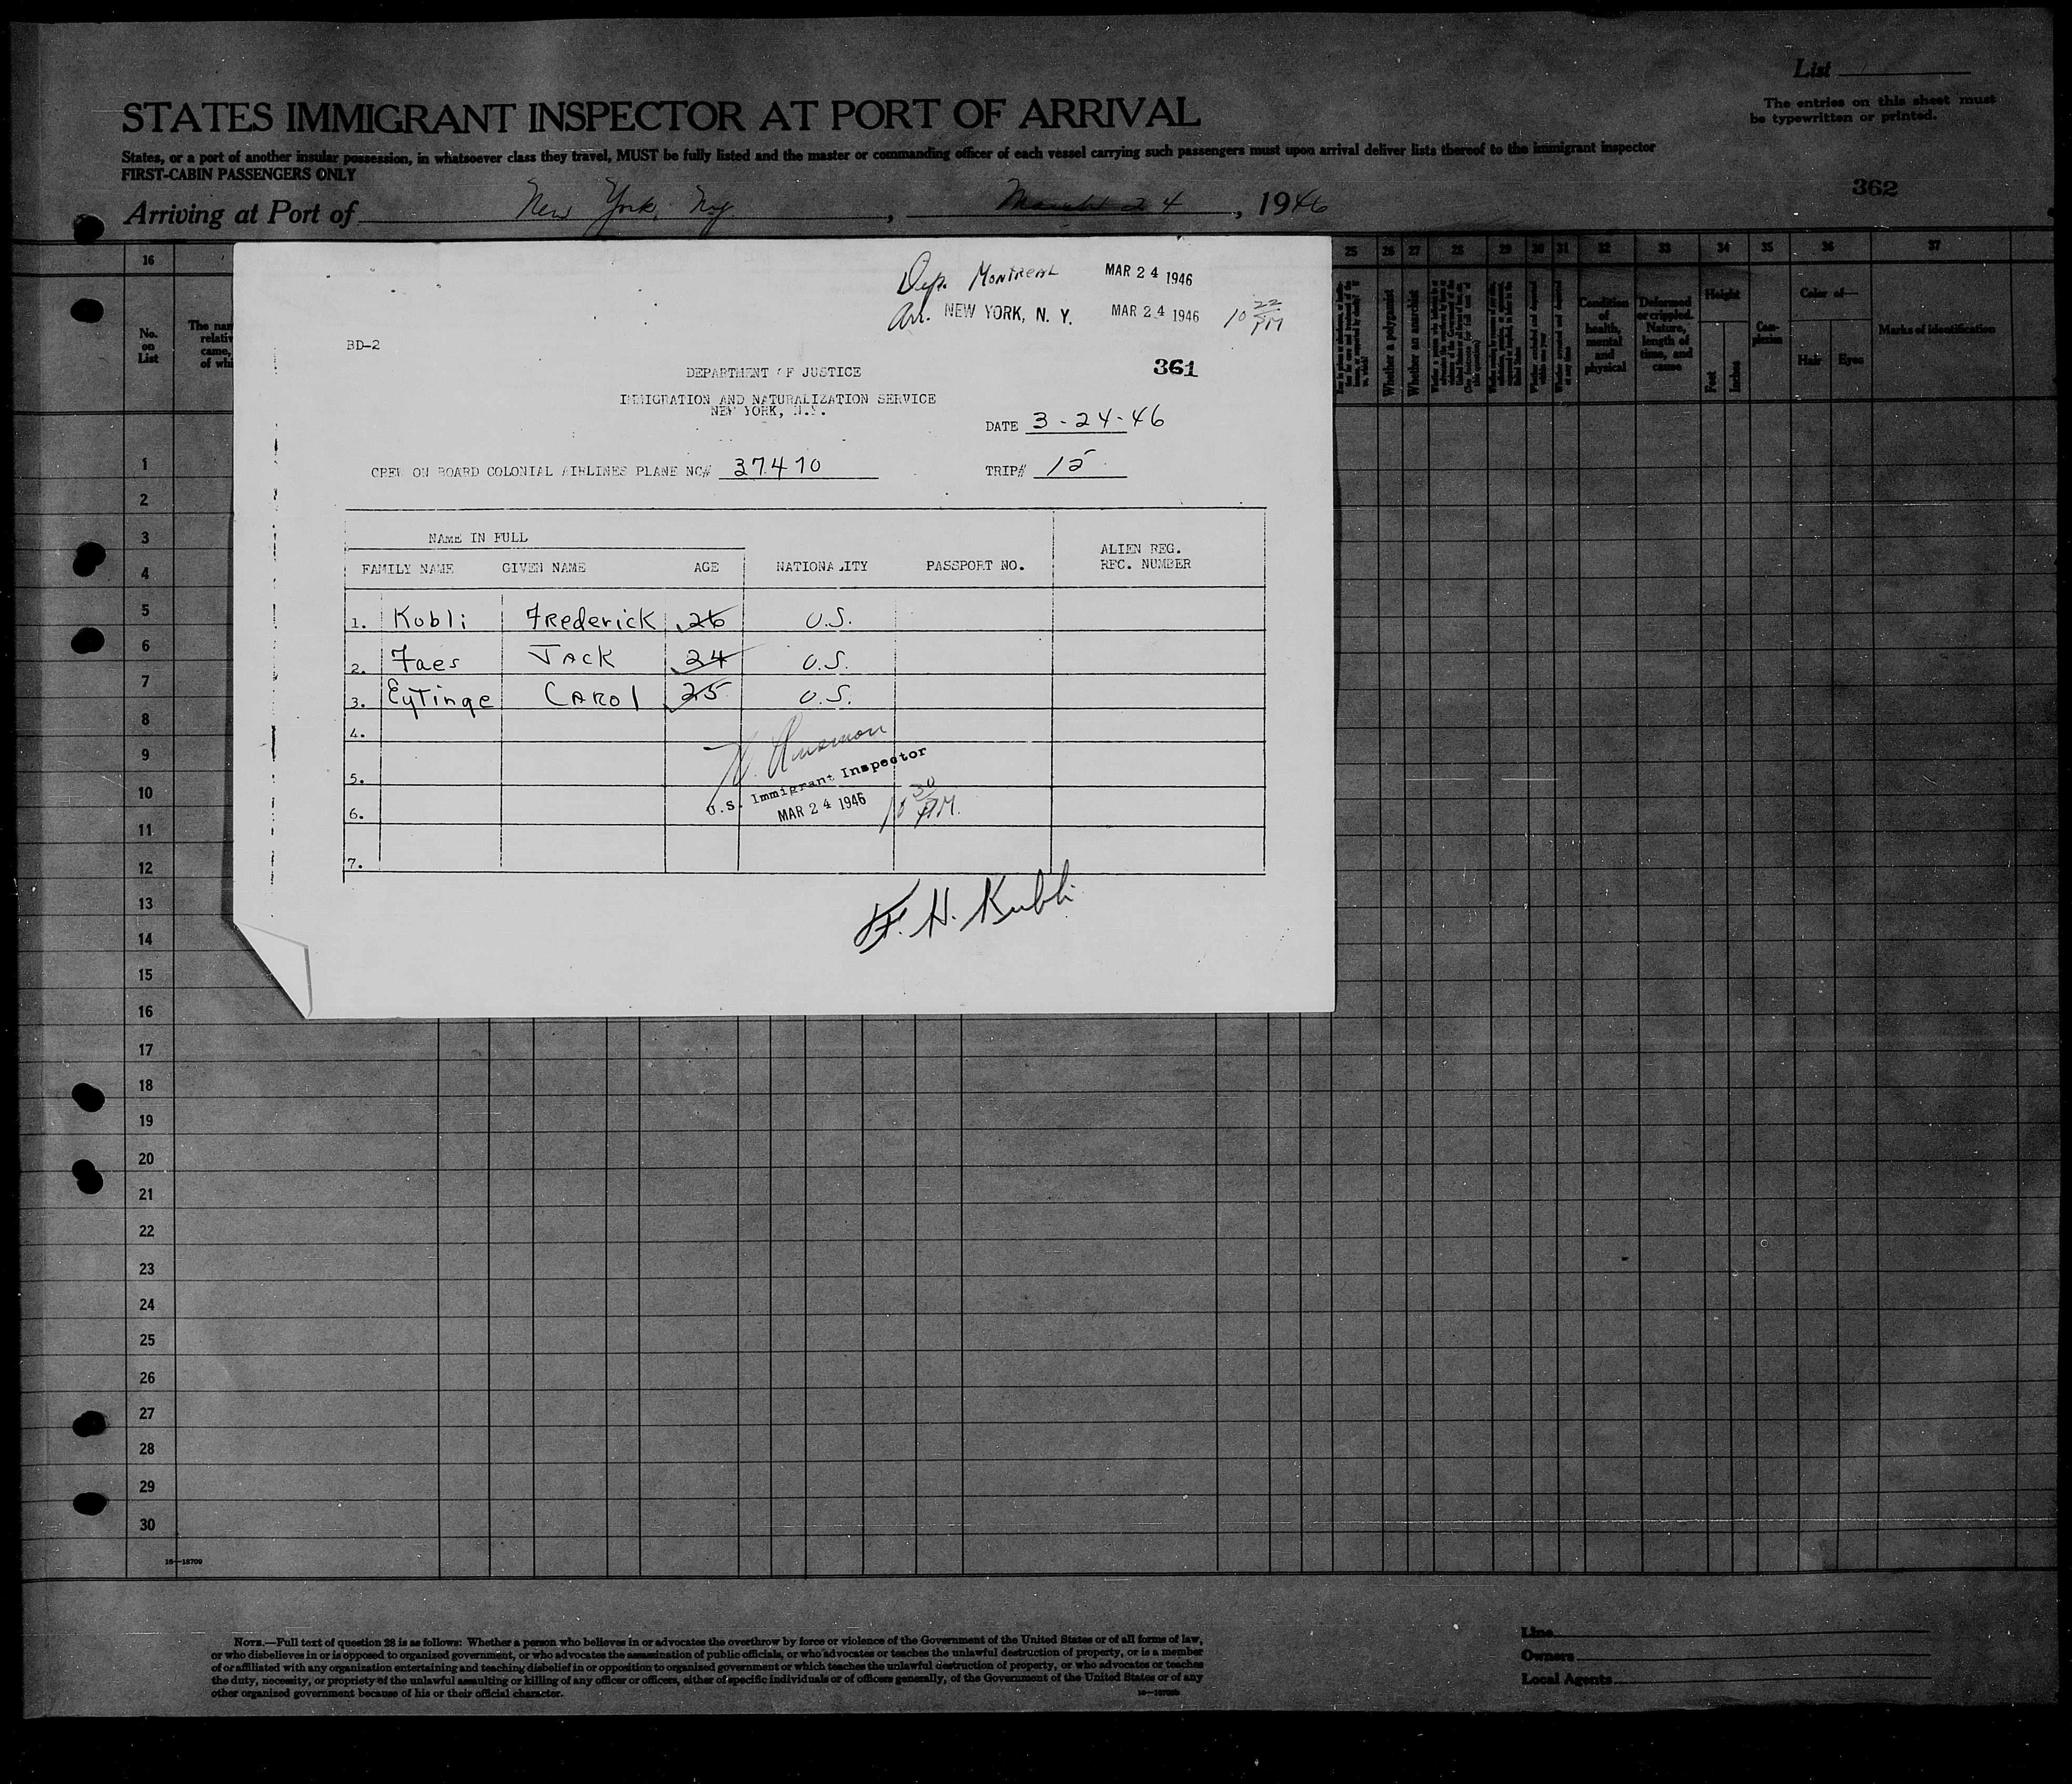 List
The entries on this sheet must
be typewritten or printed.
STATES IMMIGRANT INSPECTOR AT PORT OF ARRIVAL
States, or a port of another insular possession, in whatsoever class they travel, MUST be fully listed and the master or commanding officer of each vessel carrying such passengers must upon arrival deliver lists thereof to the immigrant inspector
FIRST-CABIN PASSENGERS ONLY
362
Arriving at Port of New York, Ny, March 24, 1946
16 25 26 27 28 29 30 31 32 33 34 35 36 37
No. on List
Whether a polygamist
Whether an anarchist
Condition of health, mental and physical
Deformed or crippled. Nature, length of time, and cause
Height
Feet
Inches
Com-plexion
Color of—
Hair
Eyes
Marks of identification
Dep. Montreal MAR 24 1946
Arr. NEW YORK, N. Y. MAR 24 1946 10 22 PM
BD-2
361
DEPARTMENT OF JUSTICE
IMMIGRATION AND NATURALIZATION SERVICE
NEW YORK, N.Y.
DATE 3-24-46
CREW ON BOARD COLONIAL AIRLINES PLANE NC# 37470 TRIP# 15
NAME IN FULL
FAMILY NAME GIVEN NAME AGE NATIONALITY PASSPORT NO. ALIEN REG. REC. NUMBER
1. Kubli Frederick 26 U.S.
2. Faes Jack 24 U.S.
3. Eytinge Carol 25 U.S.
4.
5.
6.
7.
U.S. Immigrant Inspector
MAR 24 1946 10 30 PM.
F. H. Kubli
1
2
3
4
5
6
7
8
9
10
11
12
13
14
15
16
17
18
19
20
21
22
23
24
25
26
27
28
29
30
16—18709
NOTE.—Full text of question 28 is as follows: Whether a person who believes in or advocates the overthrow by force or violence of the Government of the United States or of all forms of law,
or who disbelieves in or is opposed to organized government, or who advocates the assassination of public officials, or who advocates or teaches the unlawful destruction of property, or is a member
of or affiliated with any organization entertaining and teaching disbelief in or opposition to organized government or which teaches the unlawful destruction of property, or who advocates or teaches
the duty, necessity, or propriety of the unlawful assaulting or killing of any officer or officers, either of specific individuals or of officers generally, of the Government of the United States or of any
other organized government because of his or their official character.
Line
Owners
Local Agents